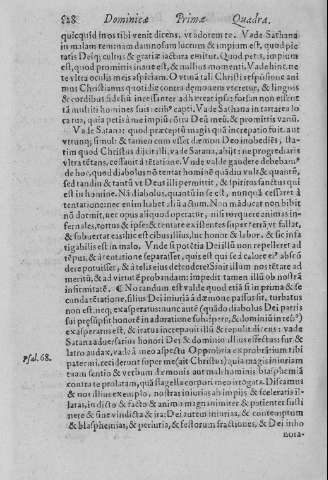 528 Dominicæ Primæ Quadra.
quicquid in os tibi venit dicens, vt adorem te. Vade Sathana
in malam tentationem damnosum lucrum & impium est, quod pie
tatis Dei, cultus & gratiæ iactura emitur. Quod petis, impium
est, quod promittis inane est, & nullius momenti. Vade hinc, ne
te vltra oculis meis aspiciam. O vtinã tali Christi responsione ani
mus Christianus quotidie contra dæmonem vteretur, &
& cordibus fidelium incessanter adhæreat ipsa: forsan non essent
tã multi homines suis capti. Vade Sathana in tartarea lo
ca tua, quia petis à me impiũ cõtra Deũ meũ, & promittis vanũ.
Vade Satana: quod præceptũ magis quã increpatio fuit. aut
vtrunq; simul: & tamen cum esset dæmon Deo inobediẽs, sta-
tim quod Christus dixit illi, vade Satana, abijt: ne progrediaris
vltra tẽtans, cessauit à tẽtatione. Vnde valde gaudere debemus
de hoc, quod diabolus nõ tentat hominẽ quãdiu vult & quantũ,
sed tandiu & tantũ vt Deus illi permittit, & spiritus sanctus qui
est in homine. Nã diabolus, quantũ in se est, nunquã cessaret à
tentatione: nec enim habet aliũ actum. Non mãducat non bibit
nõ dormit, nec opus aliquod operatur, nisi torquere animas in-
fernales, tortus & ipse: & tentare existentes super terrã vt fallat,
& subuertat eas: hic est cibus illius, hic honor & labor, & sic infa
tigabilis est in malo. Vnde si potẽtia Dei illũ non repelleret ad
tẽpus, & à tentatione separasset, quis est qui se à calore ei abscõ
dere potuisset, & à telis eius defendere? Sinit illum nos tẽtare ad
meritũ, & ad virtutẽ probandam: impedit tamen illũ ob nostrã
infirmitatẽ. ¶ Norandum est valde quod etiã si in prima & se
cunda tẽtatione, filius Dei iniuriã à dæmone passus sit, turbatus
non est, neq; exasperatus: nunc autẽ (quãdo diabolus Dei patris
sui præsũpsit honorẽ in adoratione subripere, & dominiũ in res)
exasperatus est, & iratus increpauit illũ & repulit dicens: vade
Satana aduersarius honori Dei & dominio illius effectus: fur &
latro audax, vade à meo aspectu Opprobria exprobrãtium tibi
patermi, ceciderunt super me (ait Christus) quia magis iniuriam
Psal. 68.
etiam sentio & verbum dæmonis aut mali hominis blasphemiã
contra te prolatam, quã flagella corpori meo irrogata. Discamus
& nos illius exemplo, nostras iniurias ab impijs & sceleratis il-
latas, in dicto & facto & animo magnanimiter & patienter susti
nere & sine vindicta & ira: Dei autem iniurias, & contemptum
& blasphemias, & periuria, & festorum fractiones, & Dei inho
nora-